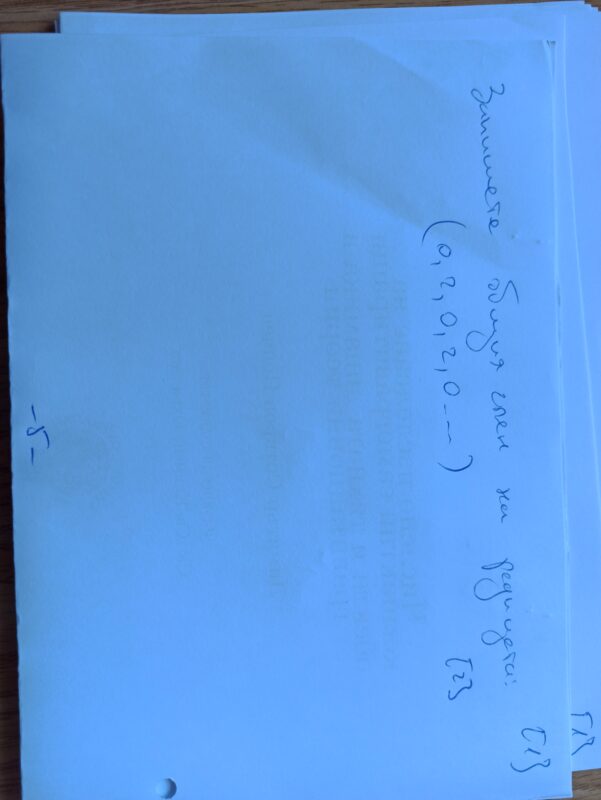 Запишете общия член на редицата: [1]
(0, 2, 0, 2, 0 ...) [2]
- 5 -
[1]